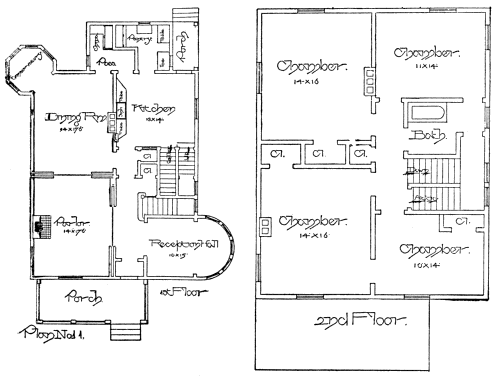 Pantry
Porch
Pass.
Dining Rm
14x176
Kitchen
13x14
Cl.
Cl.
Parlor
14x176
Reception Hall
10x15
Porch
1st Floor
Plan No 1.
Chamber.
14x16
Chamber.
11x14
Bath.
Cl.
Cl.
Cl.
Down
Chamber.
14x16
Cl.
Chamber.
10x14
2nd Floor.